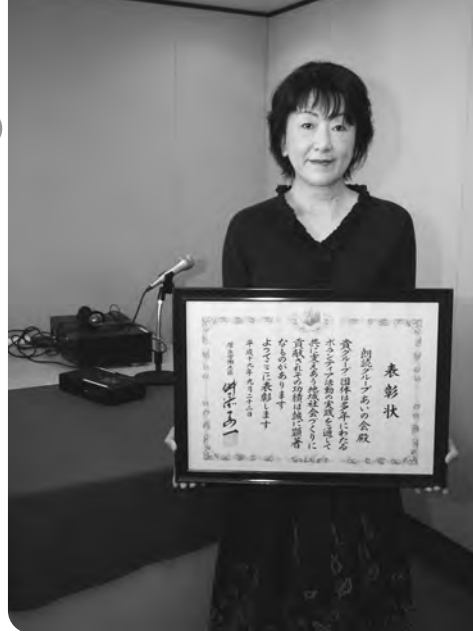 表彰状
朗読グループあいの会殿
貴グループ 団体は多年にわたる
ボランティア活動の実践を通して
共に支えあう地域社会づくりに
貢献されその功績は誠に顕著
なものがあります
よってここに表彰します
平成十九年九月二十三日
厚生労働大臣